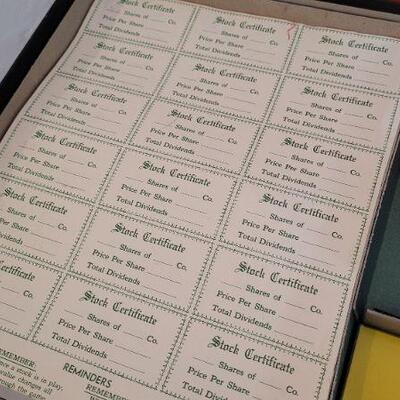 Stock Certificate
Shares of ______ Co.
Price Per Share ______
Total Dividends ______
Stock Certificate
Shares of ______ Co.
Price Per Share ______
Total Dividends ______
Stock Certificate
Shares of ______ Co.
Price Per Share ______
Total Dividends ______
Stock Certificate
Shares of ______ Co.
Price Per Share ______
Total Dividends ______
Stock Certificate
Shares of ______ Co.
Price Per Share ______
Total Dividends ______
Stock Certificate
Shares of ______ Co.
Price Per Share ______
Total Dividends ______
Stock Certificate
Shares of ______ Co.
Price Per Share ______
Total Dividends ______
Stock Certificate
Shares of ______ Co.
Price Per Share ______
Total Dividends ______
Stock Certificate
Shares of ______ Co.
Price Per Share ______
Total Dividends ______
Stock Certificate
Shares of ______ Co.
Price Per Share ______
Total Dividends ______
Stock Certificate
Shares of ______ Co.
Price Per Share ______
Total Dividends ______
Stock Certificate
Shares of ______ Co.
Price Per Share ______
Total Dividends ______
Stock Certificate
Shares of ______ Co.
Price Per Share ______
Total Dividends ______
Stock Certificate
Shares of ______ Co.
Price Per Share ______
Total Dividends ______
Stock Certificate
Shares of ______ Co.
Price Per Share ______
Total Dividends ______
Co.
Stock Certificate
Shares of ______ Co.
Price Per Share ______
Total Dividends ______
Stock Certificate
Shares of ______ Co.
Price Per Share ______
Total Dividends ______
REMINDERS
REMEMBER:
a stock is in play,
value changes all
the game